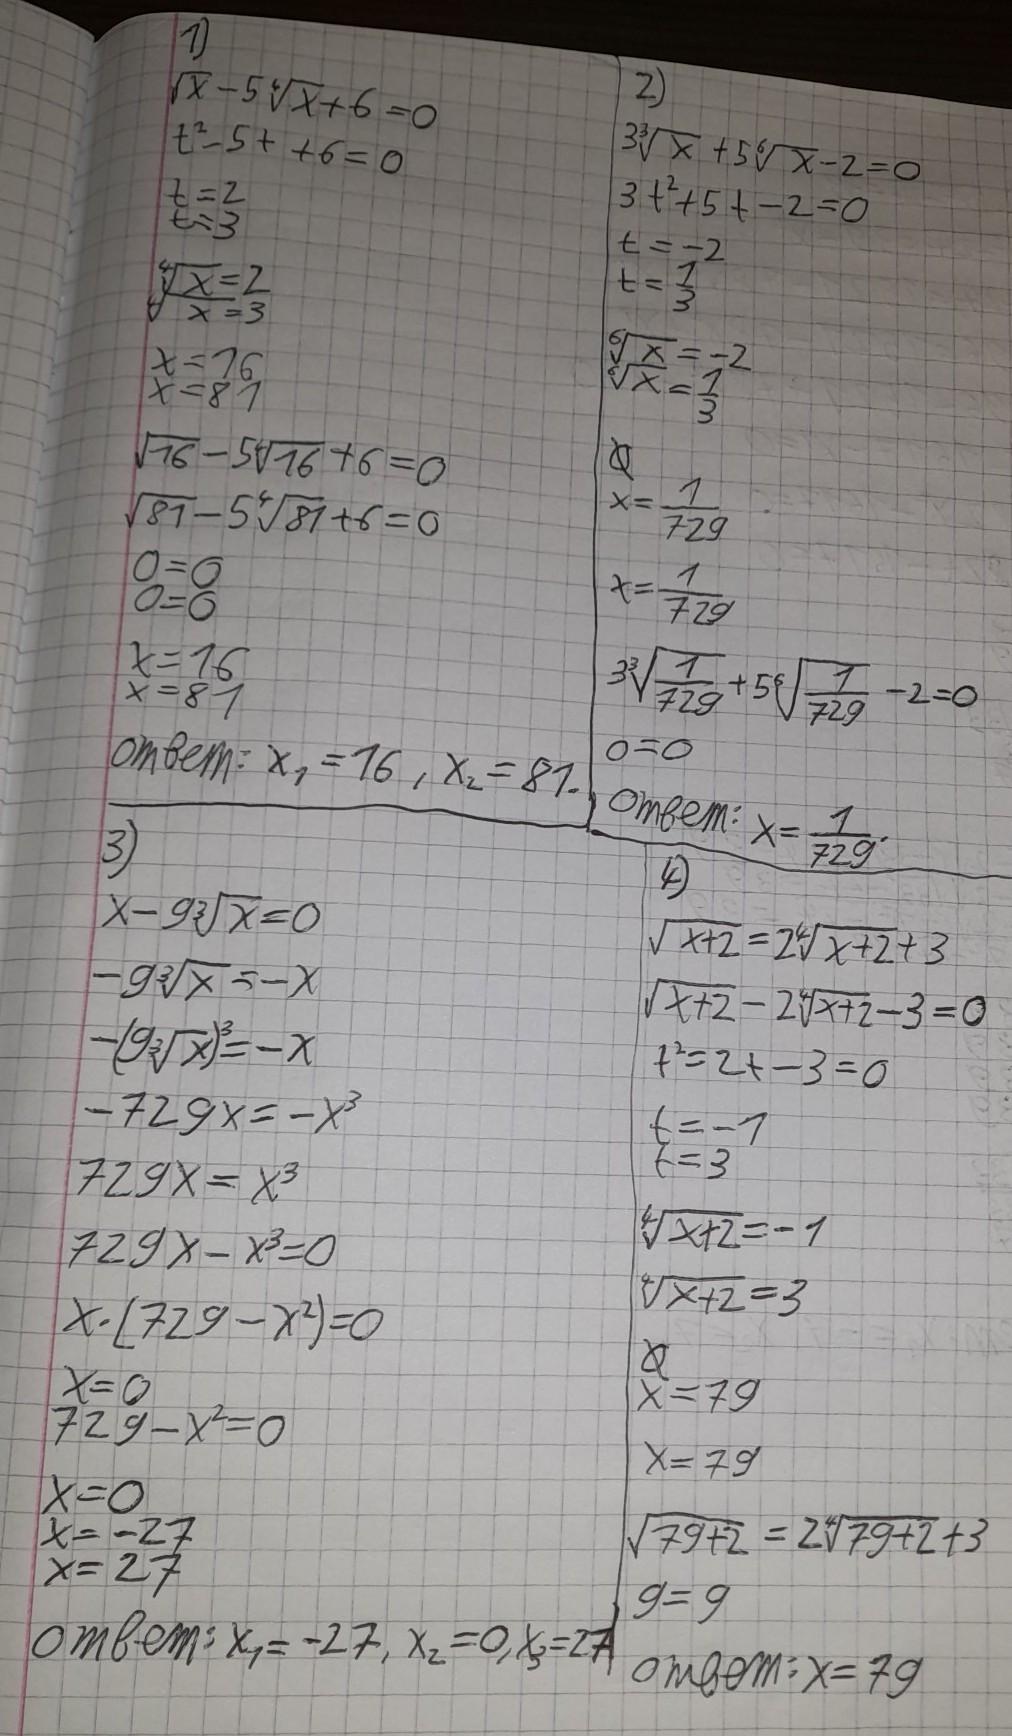 1)
√x - 5∜x + 6 = 0
t² - 5t + 6 = 0
t = 2
t = 3
∜x = 2
∜x = 3
x = 16
x = 81
√16 - 5∜16 + 6 = 0
√81 - 5∜81 + 6 = 0
0 = 0
0 = 0
x = 16
x = 81
ответ: x₁ = 16, x₂ = 81.
2)
3∛x + 5⁶√x - 2 = 0
3t² + 5t - 2 = 0
t = -2
t = 1/3
⁶√x = -2
⁶√x = 1/3
∅
x = 1/729
x = 1/729
3∛(1/729) + 5⁶√(1/729) - 2 = 0
0 = 0
ответ: x = 1/729.
3)
x - 9∛x = 0
-9∛x = -x
-(9∛x)³ = -x
-729x = -x³
729x = x³
729x - x³ = 0
x·(729 - x²) = 0
x = 0
729 - x² = 0
x = 0
x = -27
x = 27
ответ: x₁ = -27, x₂ = 0, x₃ = 27
4)
√(x+2) = 2∜(x+2) + 3
√(x+2) - 2∜(x+2) - 3 = 0
t² = 2t - 3 = 0
t = -1
t = 3
∜(x+2) = -1
∜(x+2) = 3
∅
x = 79
x = 79
√(79+2) = 2∜(79+2) + 3
9 = 9
ответ: x = 79